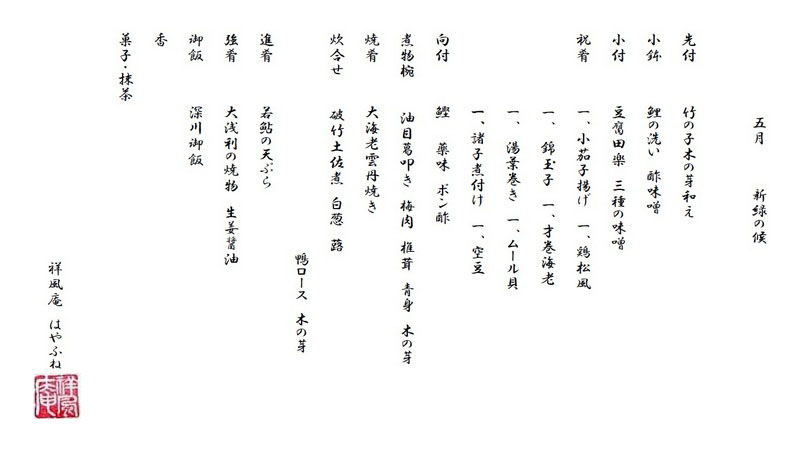 五月 新緑の候
先付 竹の子木の芽和え
小鉢 鯉の洗い 酢味噌
小付 豆腐田楽 三種の味噌
祝肴 一、小茄子揚げ 一、鶏松風
一、錦玉子 一、才巻海老
一、湯葉巻き 一、ムール貝
一、諸子煮付け 一、空豆
向付 鰹 薬味 ポン酢
煮物椀 油目葛叩き 梅肉 椎茸 青身 木の芽
焼肴 大海老雲丹焼き
炊合せ 破竹土佐煮 白葱 蕗
鴨ロース 木の芽
進肴 若鮎の天ぷら
強肴 大浅利の焼物 生姜醤油
御飯 深川御飯
香
菓子・抹茶
祥風庵 はやふね